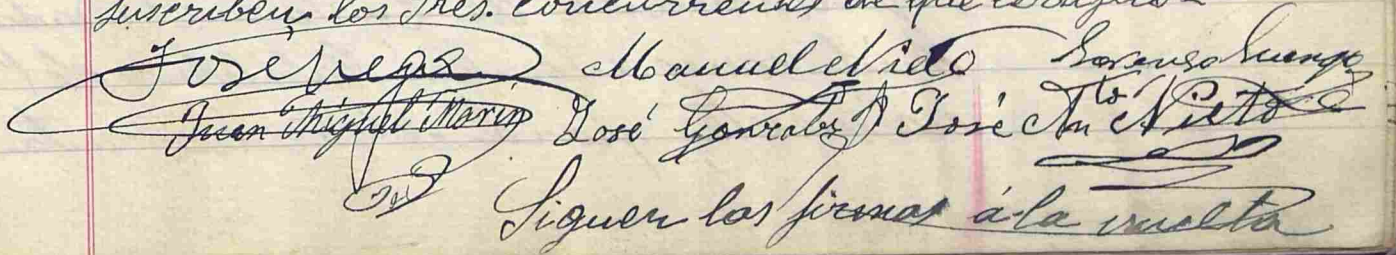 suscriben los Sres. concurrentes de que certifico
José Vega Manuel Nieto Lorenzo Luengo
Juan Miguel Marin José Gonzalez José Anto Nieto
Siguen las firmas á la vuelta